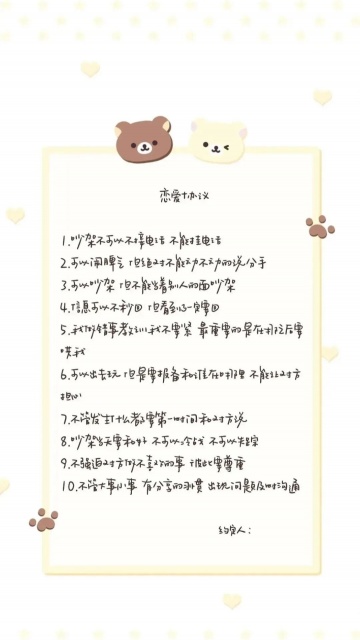 恋爱协议
1.吵架不可以不接电话 不能挂电话
2.可以闹脾气 但绝对不能动不动的说分手
3.可以吵架 但不能当着别人的面吵架
4.信息可以不秒回 但看到了一定要回
5.我做错事教训我不要紧 最重要的是在打完后要
哄我
6.可以出去玩 但是要报备和谁在哪里 不能让对方
担心
7.不管发生什么都要第一时间和对方说
8.吵架当天要和好 不可以冷战 不可以失踪
9.不强迫对方做不喜欢的事 彼此要尊重
10.不管大事小事 有分享的习惯 出现问题及时沟通
约定人：